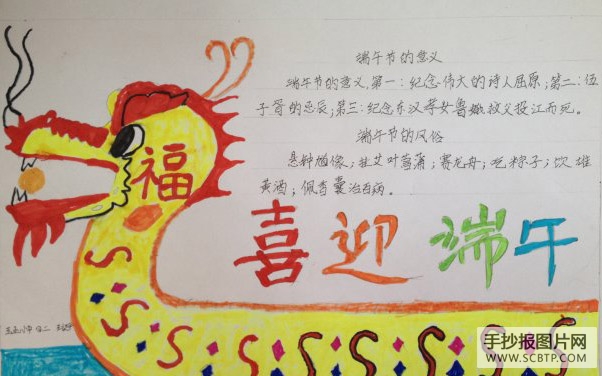 端午节的意义
端午节的意义,第一:纪念伟大的诗人屈原;第二:伍
子胥的忌辰;第三:纪念东汉孝女曹娥救父投江而死。
端午节的风俗
悬钟馗像;挂艾叶菖蒲;赛龙舟;吃粽子;饮雄
黄酒;佩香囊治百病。
福
喜迎端午
手抄报图片网
WWW.SCBTP.COM